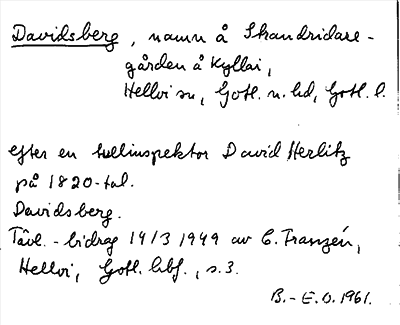 Davidsberg, namn å Strandridare-
gården å Kyllai,
Hellvi sn, Gotl. n. hd, Gotl. l.
efter en tullinspektor David Herlitz
på 1820-tal.
Davidsberg.
Tävl.-bidrag 14/3 1949 av C. Franzén,
Hellvi, Gotl. hbf., s. 3.
B.-E.O. 1961.